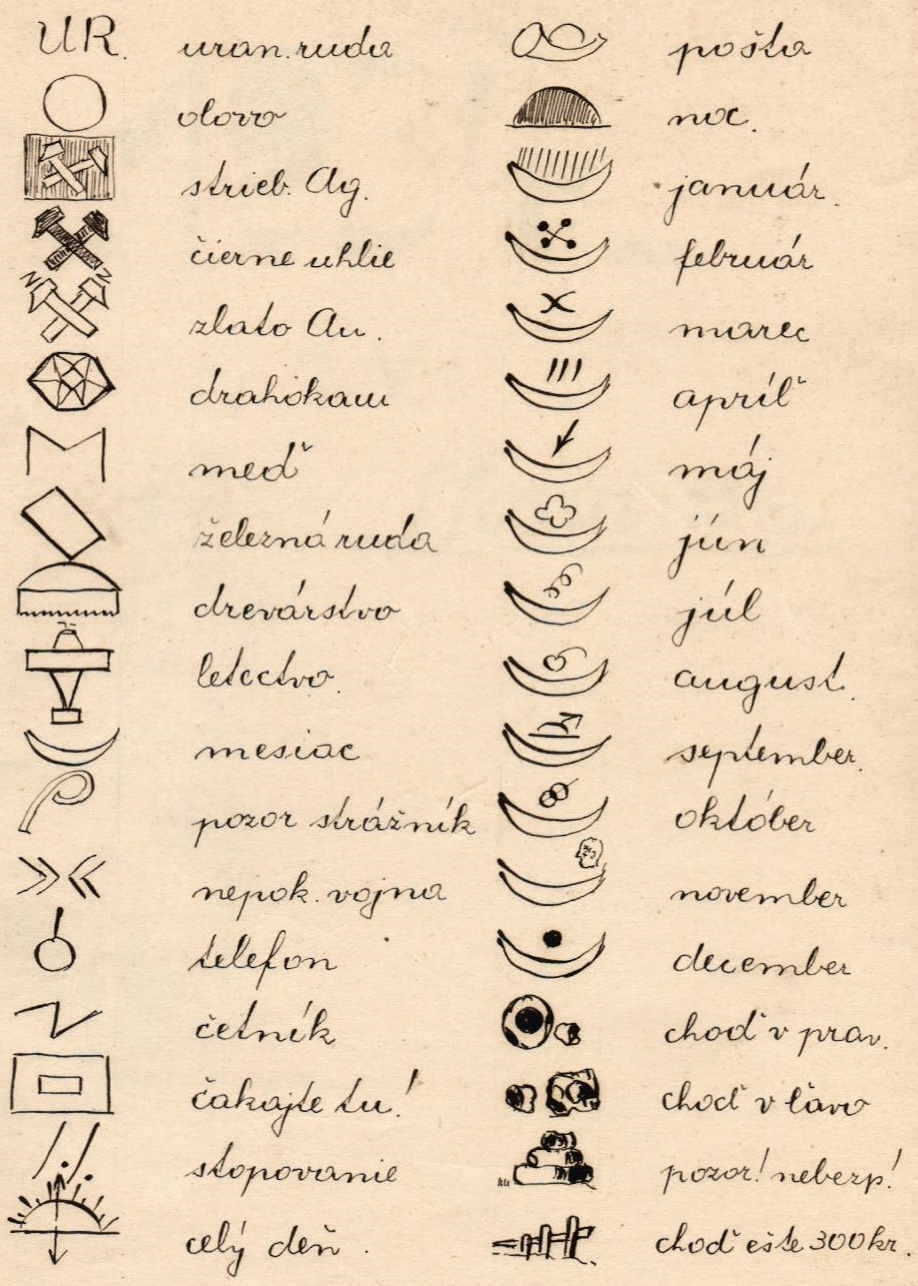 UR. uran. ruda
olovo
strieb. Ag.
čierne uhlie
zlato Au.
drahokam
meď
železná ruda
drevárstvo
letectvo.
mesiac
pozor strážník
nepok. vojna
telefon
četník
čakajte tu!
stopovanie
celý deň.
pošta
noc.
január.
február
marec
apríľ
máj
jún
júl
august.
september.
október
november
december
choď v prav.
choď v ľavo
pozor! nebezp!
choď ešte 300 kr.